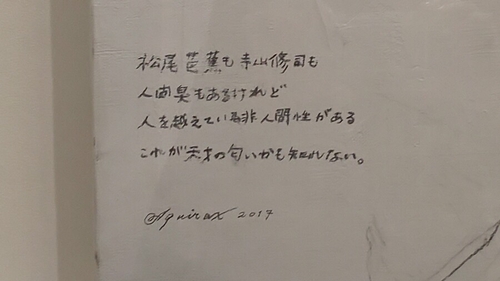 松尾芭蕉も寺山修司も
人間臭もあるけれど
人を越えている非人間性がある
これが天才の匂いかも知れない。
Aquirax 2014